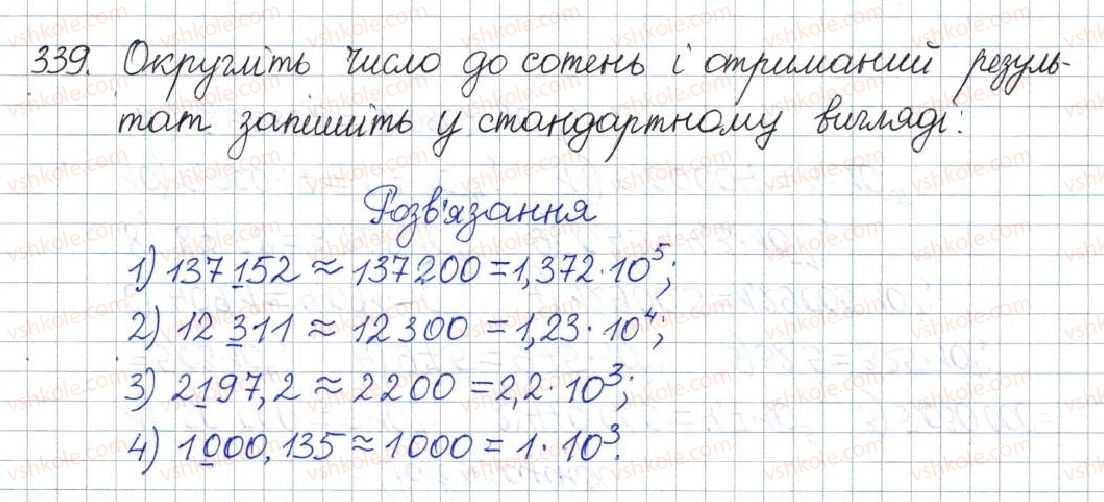 339. Округліть число до сотень і отриманий резуль-
тат запишіть у стандартному вигляді:
Розв'язання
1) 137152 ≈ 137200 = 1,372·10⁵;
2) 12 311 ≈ 12300 = 1,23·10⁴;
3) 2197,2 ≈ 2200 = 2,2·10³;
4) 1000,135 ≈ 1000 = 1·10³.